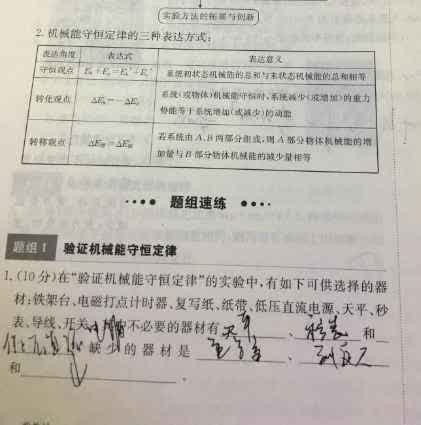 实验方法的拓展与创新
2.机械能守恒定律的三种表达方式:
表达角度 表达式 表达意义
守恒观点 Ek+Ep=Ek'+Ep' 系统初状态机械能的总和与末状态机械能的总和相等
转化观点 ΔEk=-ΔEp 系统(或物体)机械能守恒时,系统减少(或增加)的重力
势能等于系统增加(或减少)的动能
转移观点 ΔEA增=ΔEB减 若系统由A、B两部分组成,则A部分物体机械能的增
加量与B部分物体机械能的减少量相等
题组速练
题组1 验证机械能守恒定律
1.(10分)在“验证机械能守恒定律”的实验中,有如下可供选择的器
材:铁架台、电磁打点计时器、复写纸、纸带、低压直流电源、天平、秒
表、导线、开关 不必要的器材有 天平 、 秒表 和
缺少的器材是 重 、 刻度尺
和 .